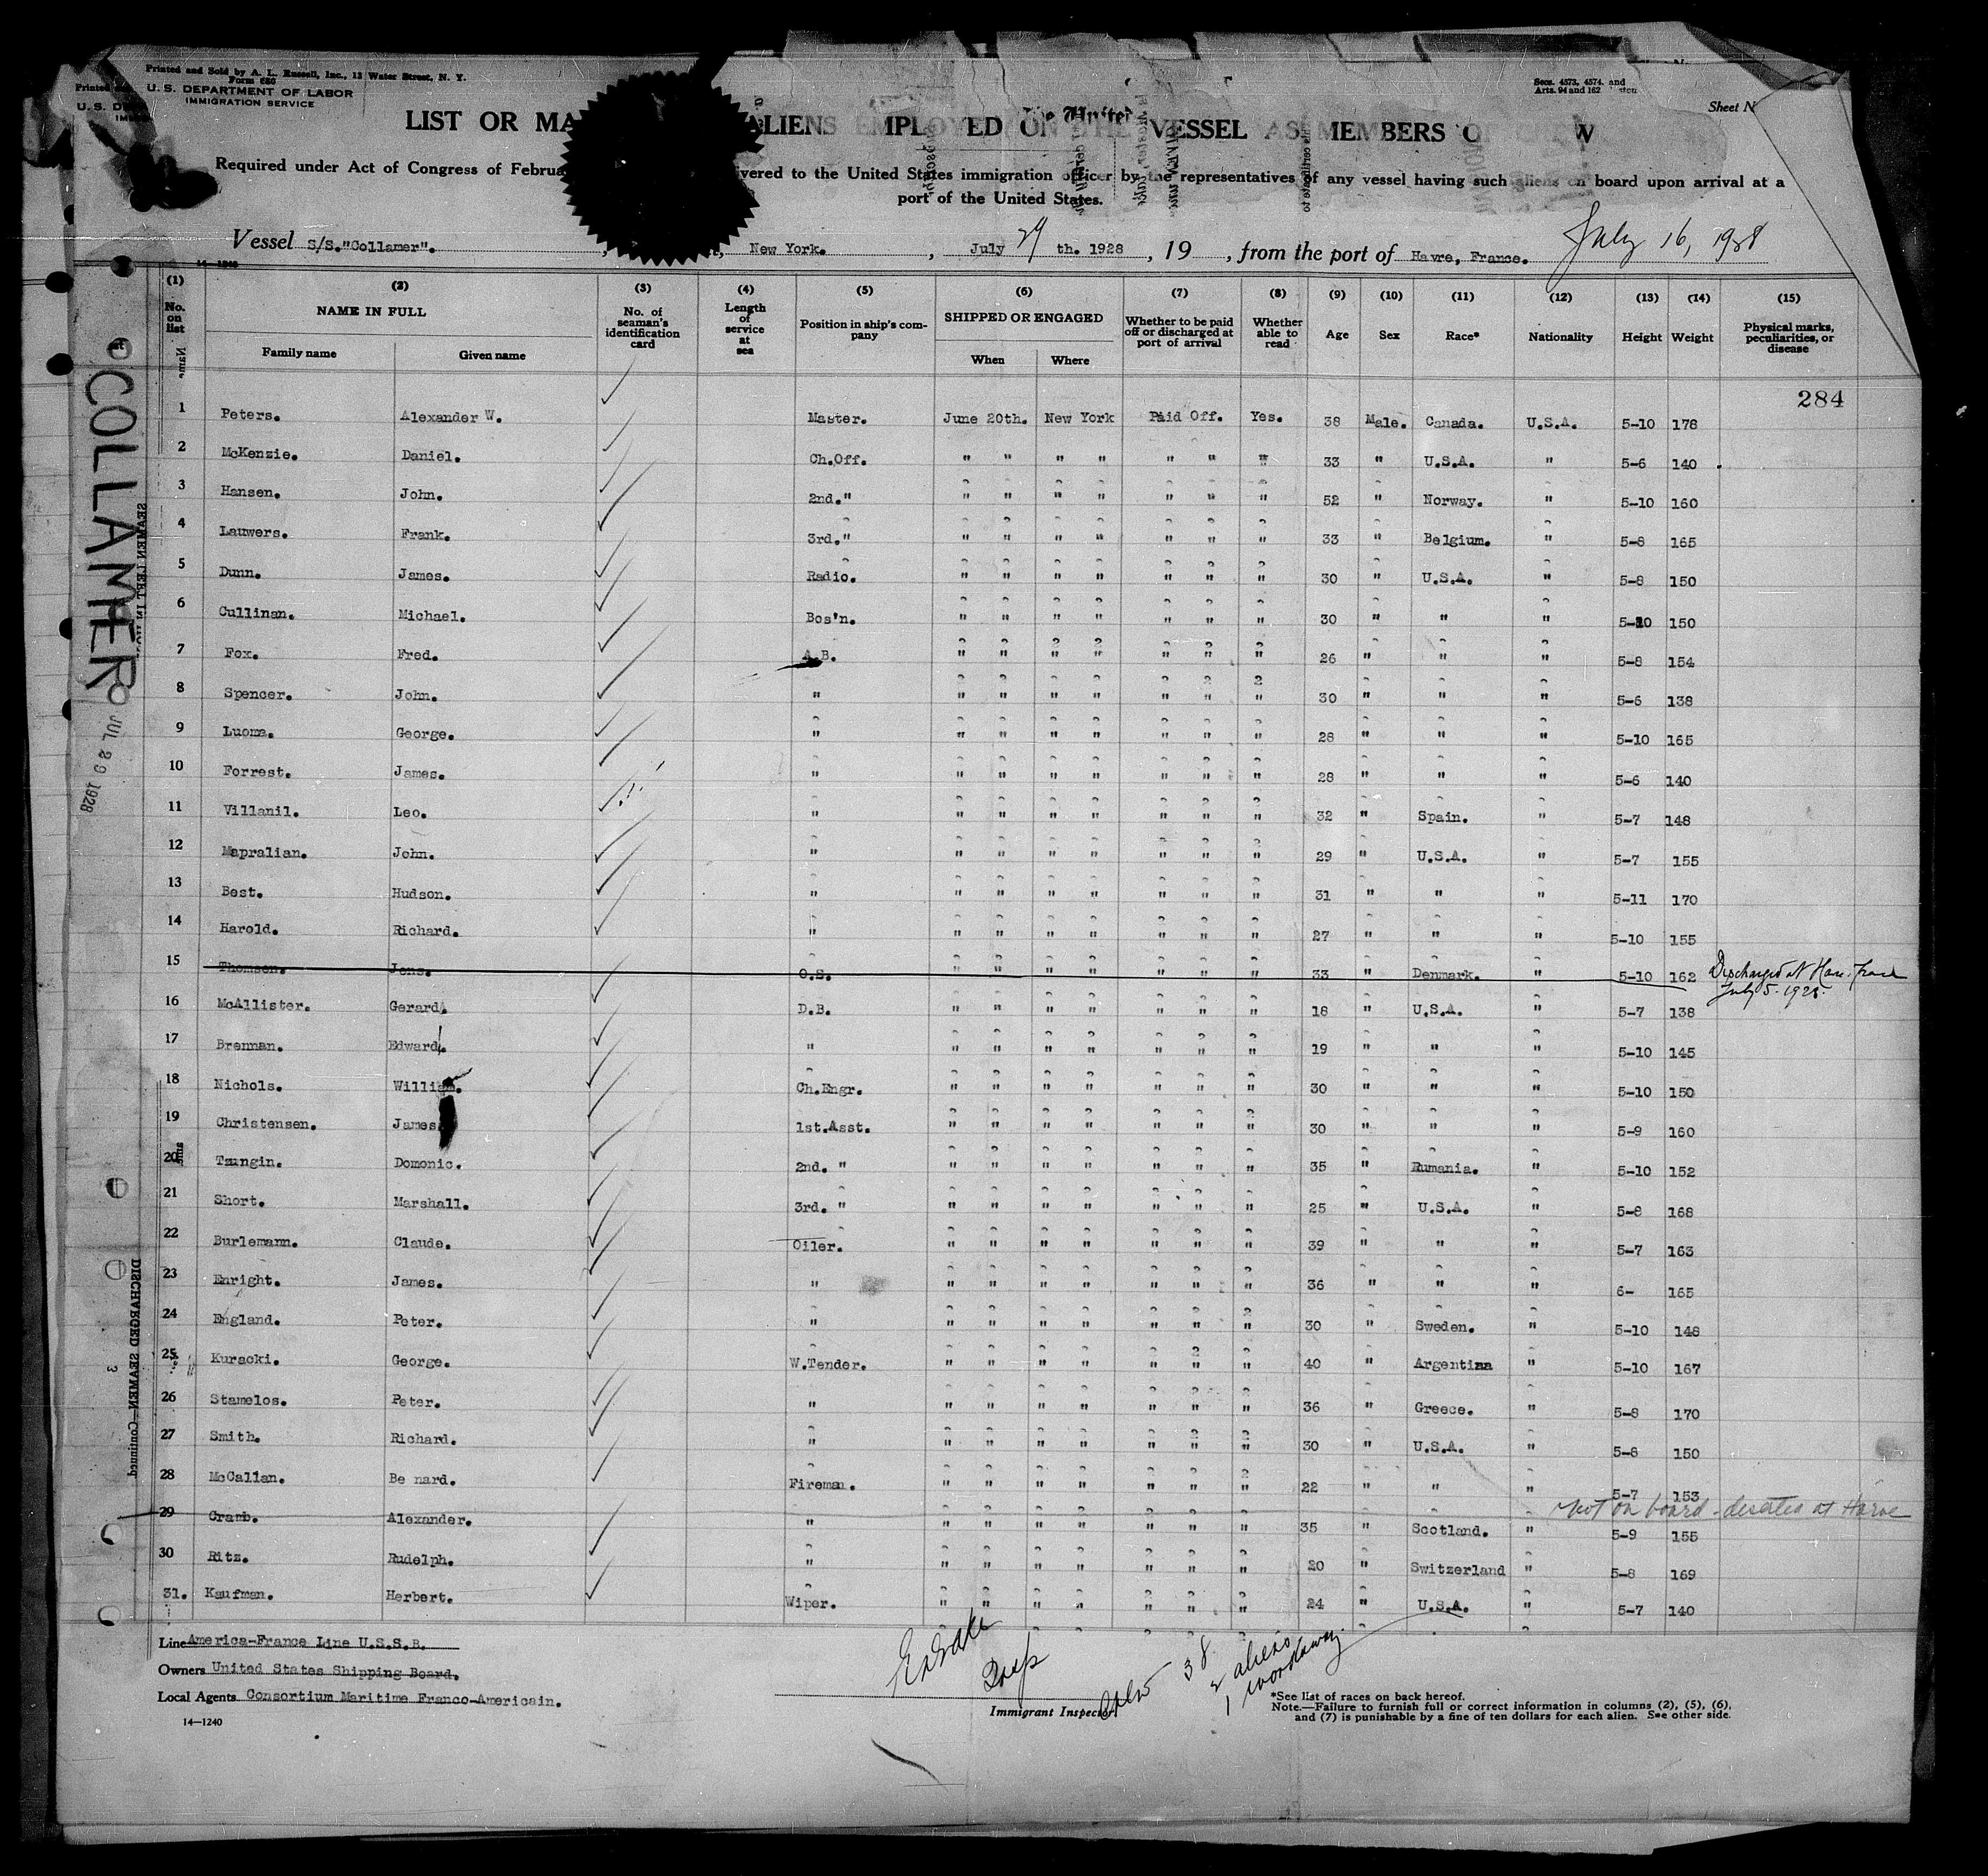 Printed and Sold by A. L. Russell, Inc., 13 Water Street, N. Y.
Form 680
U. S. DEPARTMENT OF LABOR
IMMIGRATION SERVICE
Secs. 4573, 4574, and
Arts. 94 and 162
Sheet N
LIST OR MA ALIENS EMPLOYED ON THE VESSEL AS MEMBERS OF W
Required under Act of Congress of Februa ivered to the United States immigration officer by the representatives of any vessel having such aliens on board upon arrival at a
port of the United States.
Vessel S/S."Collamer". , New York. , July 29 th. 1928 , 19 , from the port of Havre, France. July 16, 1928
(1) (2) (3) (4) (5) (6) (7) (8) (9) (10) (11) (12) (13) (14) (15)
No. on list NAME IN FULL No. of seaman's identification card Length of service at sea Position in ship's company SHIPPED OR ENGAGED Whether to be paid off or discharged at port of arrival Whether able to read Age Sex Race* Nationality Height Weight Physical marks, peculiarities, or disease
Family name Given name When Where
284
1 Peters. Alexander W. Master. June 20th. New York Paid Off. Yes. 38 Male. Canada. U.S.A. 5-10 178
2 McKenzie. Daniel. Ch.Off. " " " " " " " 33 " U.S.A. " 5-6 140
3 Hansen. John. 2nd." " " " " " " " 52 " Norway. " 5-10 160
4 Lauwers. Frank. 3rd." " " " " " " " 33 " Belgium. " 5-8 165
5 Dunn. James. Radio. " " " " " " " 30 " U.S.A. " 5-8 150
6 Cullinan. Michael. Bos'n. " " " " " " " 30 " " " 5-10 150
7 Fox. Fred. A.B. " " " " " " " 26 " " " 5-8 154
8 Spencer. John. " " " " " " " " 30 " " " 5-6 138
9 Luoma. George. " " " " " " " " 28 " " " 5-10 165
10 Forrest. James. " " " " " " " " 28 " " " 5-6 140
11 Villanil. Leo. " " " " " " " " 32 " Spain. " 5-7 148
12 Mapralian. John. " " " " " " " " 29 " U.S.A. " 5-7 155
13 Best. Hudson. " " " " " " " " 31 " " " 5-11 170
14 Harold. Richard. " " " " " " " " 27 " " " 5-10 155
15 Thomsen. Jens. O.S. " " " " " " " 33 " Denmark. " 5-10 162 Discharged at Havre France
July 5. 1928.
16 McAllister. Gerard. D.B. " " " " " " " 18 " U.S.A. " 5-7 138
17 Brennan. Edward. " " " " " " " " 19 " " " 5-10 145
18 Nichols. William. Ch.Engr. " " " " " " " 30 " " " 5-10 150
19 Christensen. James 1st.Asst. " " " " " " " 30 " " " 5-9 160
20 Tzungin. Domonic. 2nd. " " " " " " " " 35 " Rumania. " 5-10 152
21 Short. Marshall. 3rd. " " " " " " " " 25 " U.S.A. " 5-8 168
22 Burlemann. Claude. Oiler. " " " " " " " 39 " " " 5-7 163
23 Enright. James. " " " " " " " " 36 " " " 6- 165
24 England. Peter. " " " " " " " " 30 " Sweden. " 5-10 148
25 Kuracki. George. W.Tender. " " " " " " " 40 " Argentina " 5-10 167
26 Stamelos. Peter. " " " " " " " " 36 " Greece. " 5-8 170
27 Smith. Richard. " " " " " " " " 30 " U.S.A. " 5-8 150
28 McCallan. Be nard. Fireman. " " " " " " " 22 " " " 5-7 153
Not on board - deserted at Havre
29 Cramb. Alexander. " " " " " " " " 35 " Scotland. " 5-9 155
30 Ritz. Rudolph. " " " " " " " " 20 " Switzerland " 5-8 169
31. Kaufman. Herbert. Wiper. " " " " " " " 24 " U.S.A. " 5-7 140
Line America-France Line U.S.S.B.
Owners United States Shipping Board.
Local Agents Consortium Maritime Franco-Americain.
14—1240
Immigrant Inspector
Crew 38
2 aliens
1 workaway.
*See list of races on back hereof.
Note.—Failure to furnish full or correct information in columns (2), (5), (6),
and (7) is punishable by a fine of ten dollars for each alien. See other side.
COLLAMER
JUL 29 1928
DISCHARGED SEAMEN—Continued
3